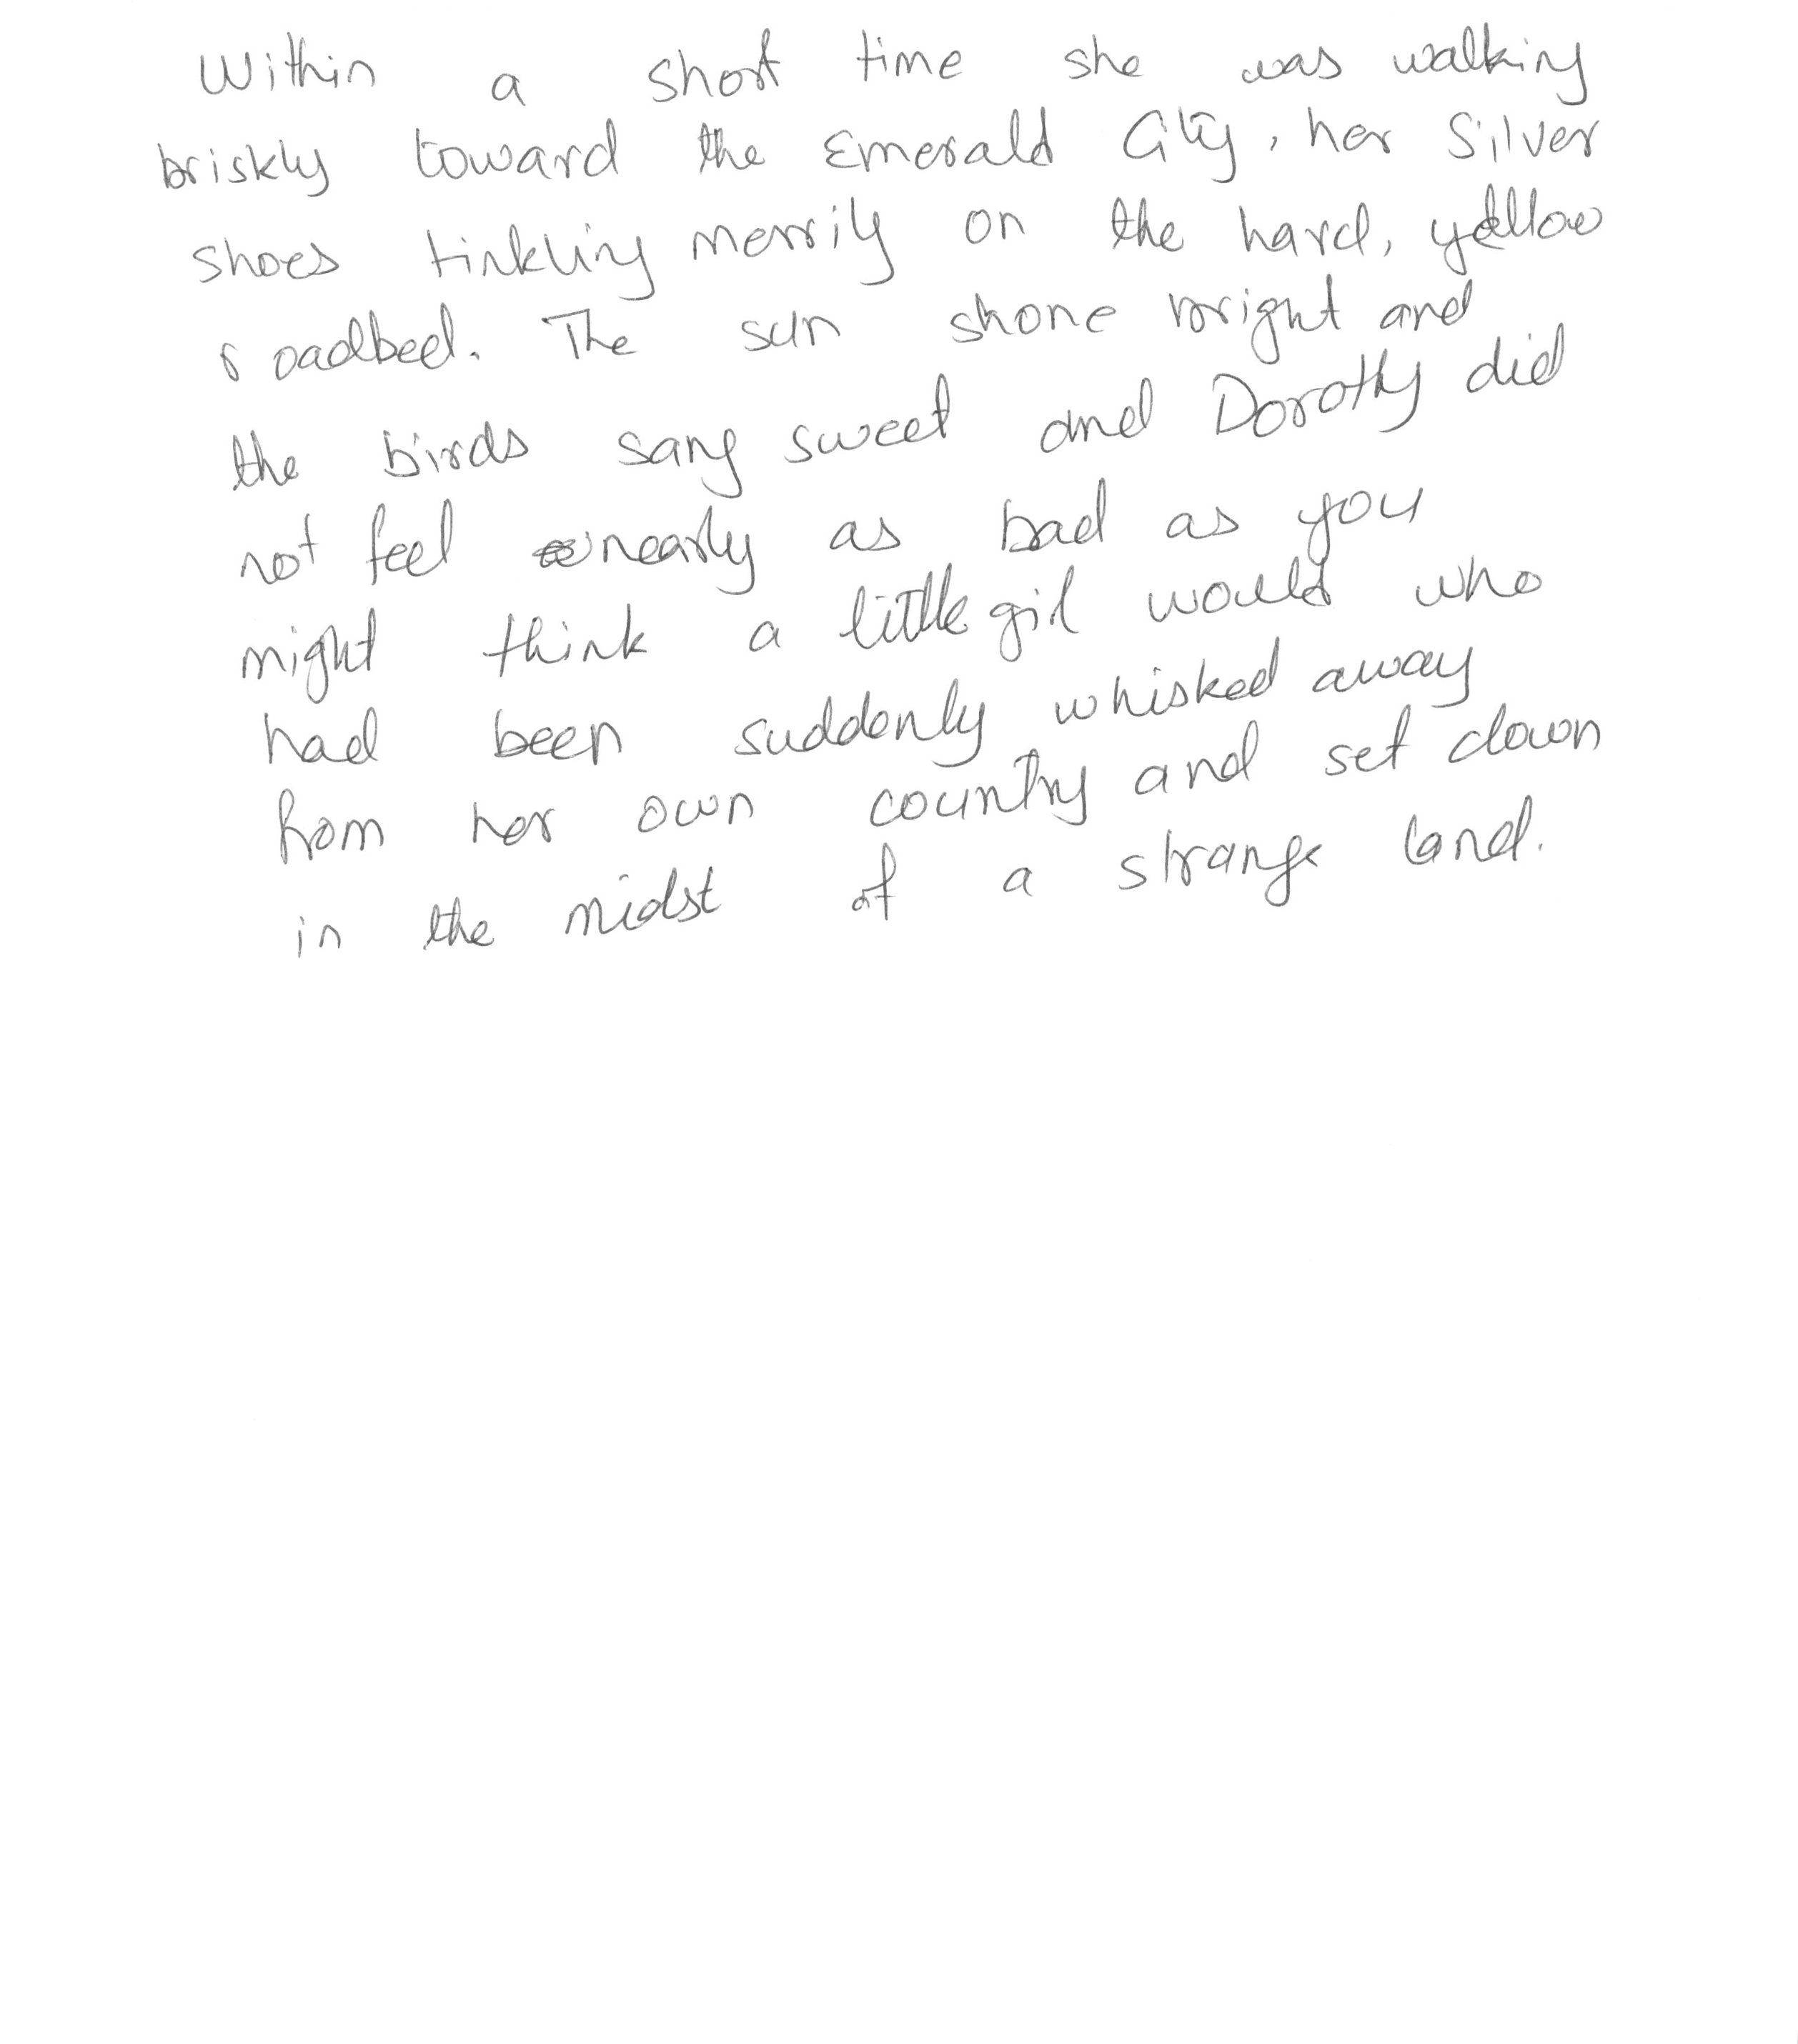 Within a short time she was walking
briskly toward the Emerald City, her Silver
shoes tinkling merrily on the hard, yellow
roadbed. The sun shone bright and
the birds sang sweet and Dorothy did
not feel nearly as bad as you
might think a little girl would who
had been suddenly whisked away
from her own country and set down
in the midst of a strange land.